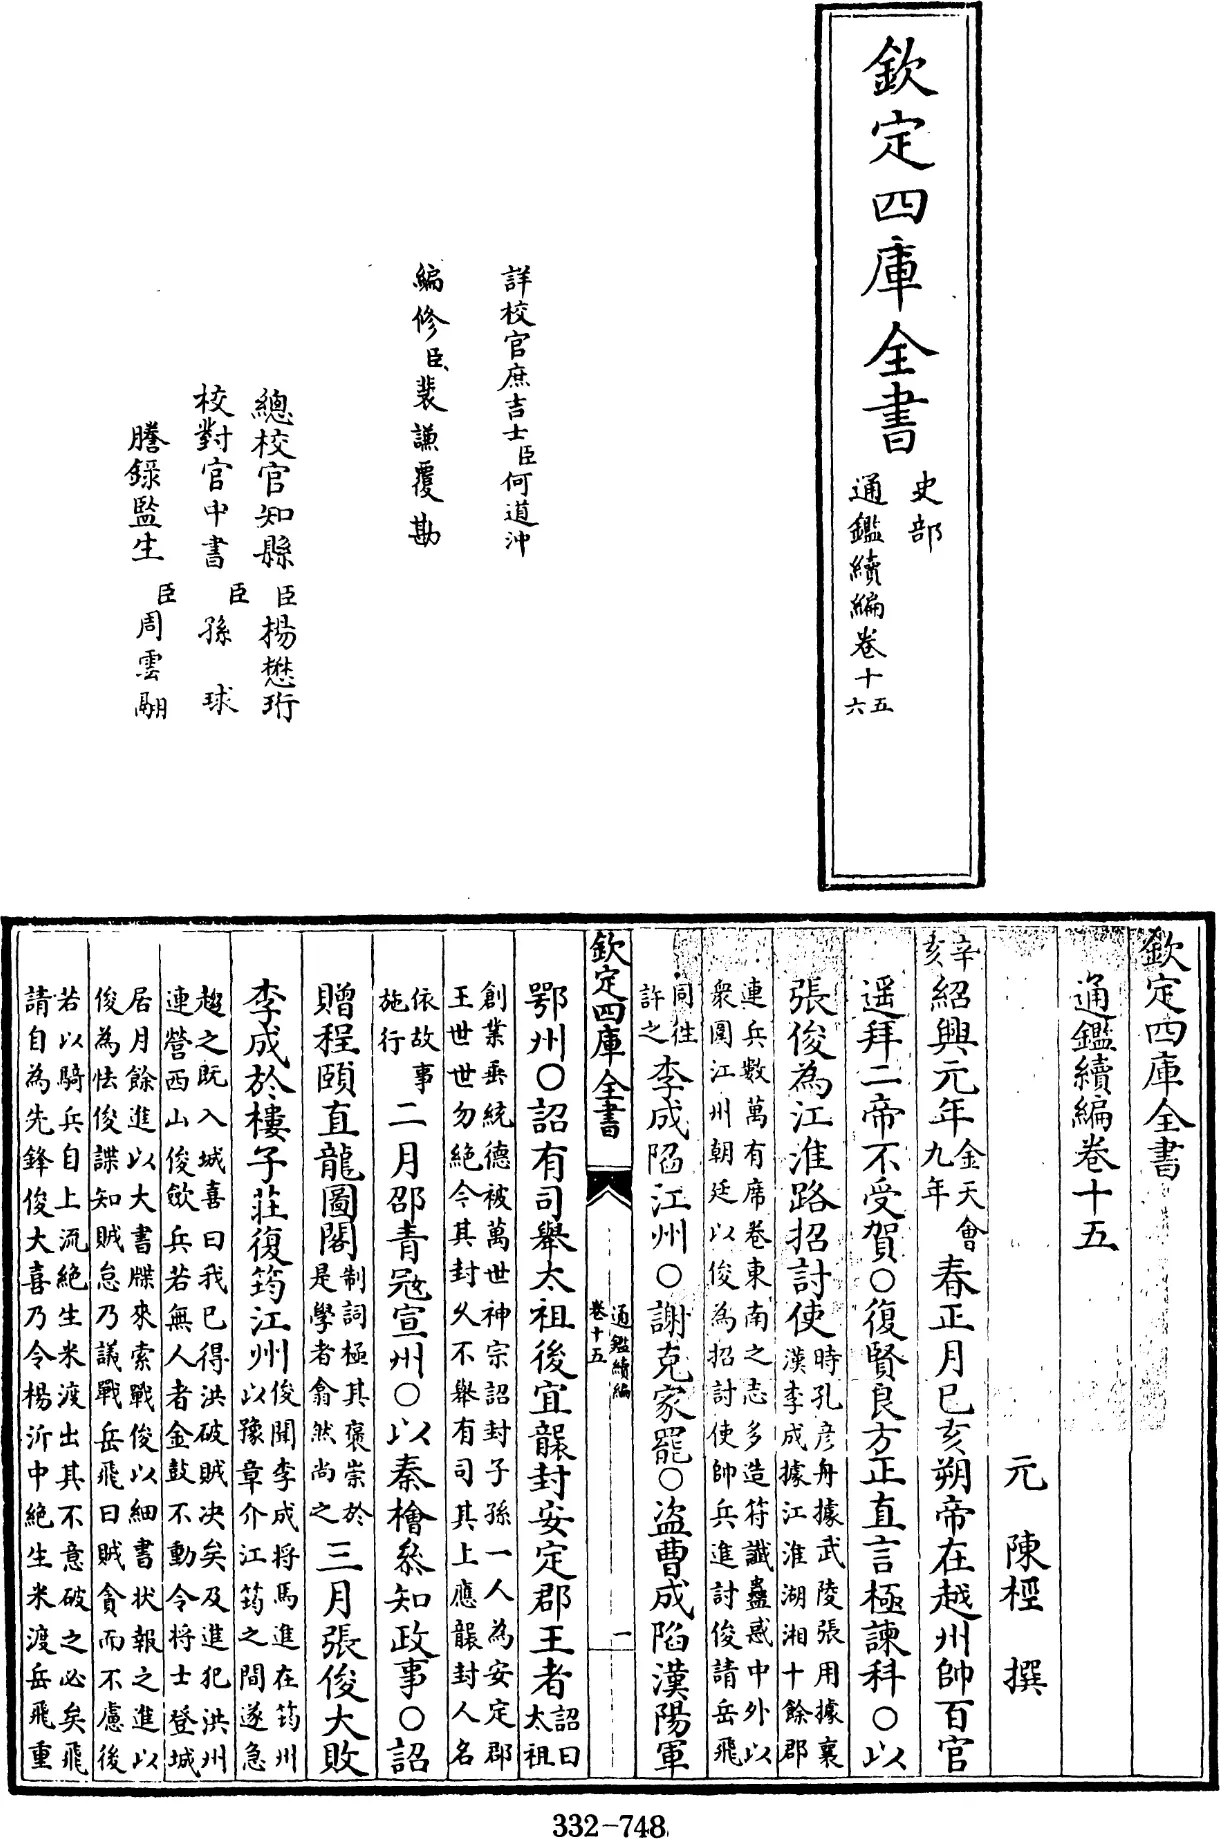 欽定四庫全書
史部
通鑑續編卷十五
六
詳校官庶吉士臣何道沖
編修臣裴謙覆勘
總校官知縣臣楊懋珩
校對官中書臣孫球
謄錄監生臣周雲翮
欽定四庫全書
通鑑續編卷十五
元 陳桱 撰
辛亥紹興元年金天會九年春正月己亥朔帝在越州帥百官
遥拜二帝不受賀○復賢良方正直言極諫科○以
張俊為江淮路招討使時孔彦舟據武陵張用據襄漢李成據江淮湖湘十餘郡
連兵數萬有席卷東南之志多造符讖蠱惑中外以衆圍江州朝廷以俊為招討使帥兵進討俊請岳飛
同往許之李成陷江州○謝克家罷○盗曹成陷漢陽軍
欽定四庫全書
通鑑續編
卷十五
一
鄂州○詔有司舉太祖後宜襲封安定郡王者詔曰太祖
創業垂統德被萬世神宗詔封子孫一人為安定郡王世世勿絶今其封久不舉有司其上應襲封人名
依故事施行二月邵青冦宣州○以秦檜叅知政事○詔
贈程頤直龍圖閣制詞極其褒崇於是學者翕然尚之三月張俊大敗
李成於樓子莊復筠江州俊聞李成將馬進在筠州以豫章介江筠之間遂急
趨之既入城喜曰我已得洪破賊决矣及進犯洪州連營西山俊歛兵若無人者金鼓不動令將士登城
居月餘進以大書牒來索戰俊以細書状報之進以俊為怯俊諜知賊怠乃議戰岳飛曰賊貪而不慮後
若以騎兵自上流絶生米渡出其不意破之必矣飛請自為先鋒俊大喜乃令楊沂中絶生米渡岳飛重
332-748